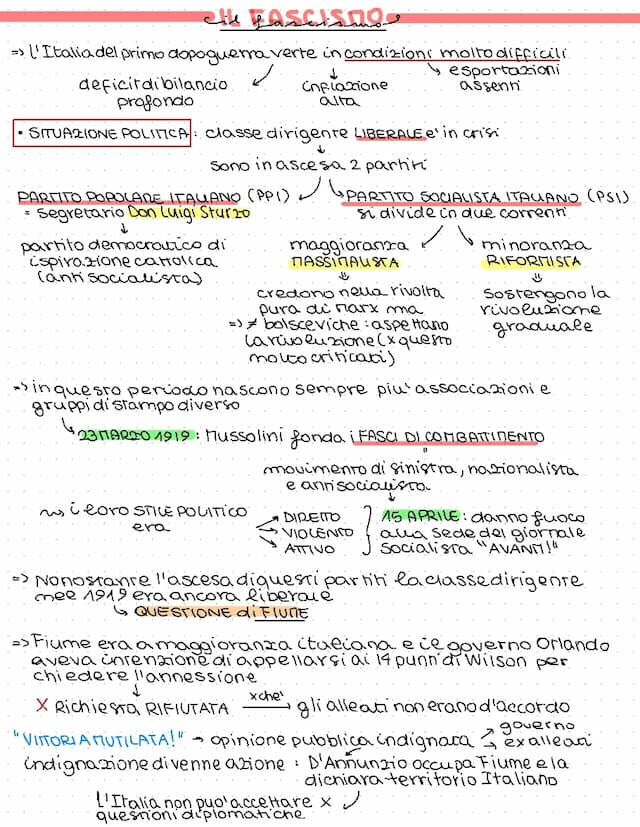 il FASCISMO
il fascismo
=> l'Italia del primo dopoguerra verte in condizioni molto difficili
deficit di bilancio profondo
inflazione alta
esportazioni assenti
• SITUAZIONE POLITICA: classe dirigente LIBERALE e' in crisi
sono in ascesa 2 partiti
PARTITO POPOLARE ITALIANO (PPI)
= segretario Don Luigi Sturzo
partito democratico di
ispirazione cattolica
(antisocialista)
PARTITO SOCIALISTA ITALIANO (PSI)
si divide in due correnti
maggioranza
MASSIMALISTA
credono nella rivolta
pura di Marx ma
=> ≠ bolsceviche: aspettano
la rivoluzione (x questo
molto criticati)
minoranza
RIFORMISTA
sostengono la
rivoluzione
graduale
=> in questo periodo nascono sempre piu' associazioni e
gruppi di stampo diverso
23 MARZO 1919: Mussolini fonda i FASCI DI COMBATTIMENTO
"
movimento di sinistra, nazionalista
e antisocialista
~> il loro STILE POLITICO
era
DIRETTO
VIOLENTO
ATTIVO
15 APRILE: danno fuoco
alla sede del giornale
socialista "AVANTI!"
=> Nonostante l'ascesa di questi partiti la classe dirigente
nel 1919 era ancora liberale
QUESTIONE di FIUME
=> Fiume era a maggioranza italiana e il governo Orlando
aveva intenzione di appellarsi ai 14 punti di Wilson per
chiedere l'annessione
X Richiesta RIFIUTATA xche' gli alleati non erano d'accordo
"VITTORIA MUTILATA!" → opinione pubblica indignata
governo
ex alleati
indignazione divenne azione: D'Annunzio occupa Fiume e la
dichiara territorio Italiano
L'Italia non puo' accettare x
questioni diplomatiche